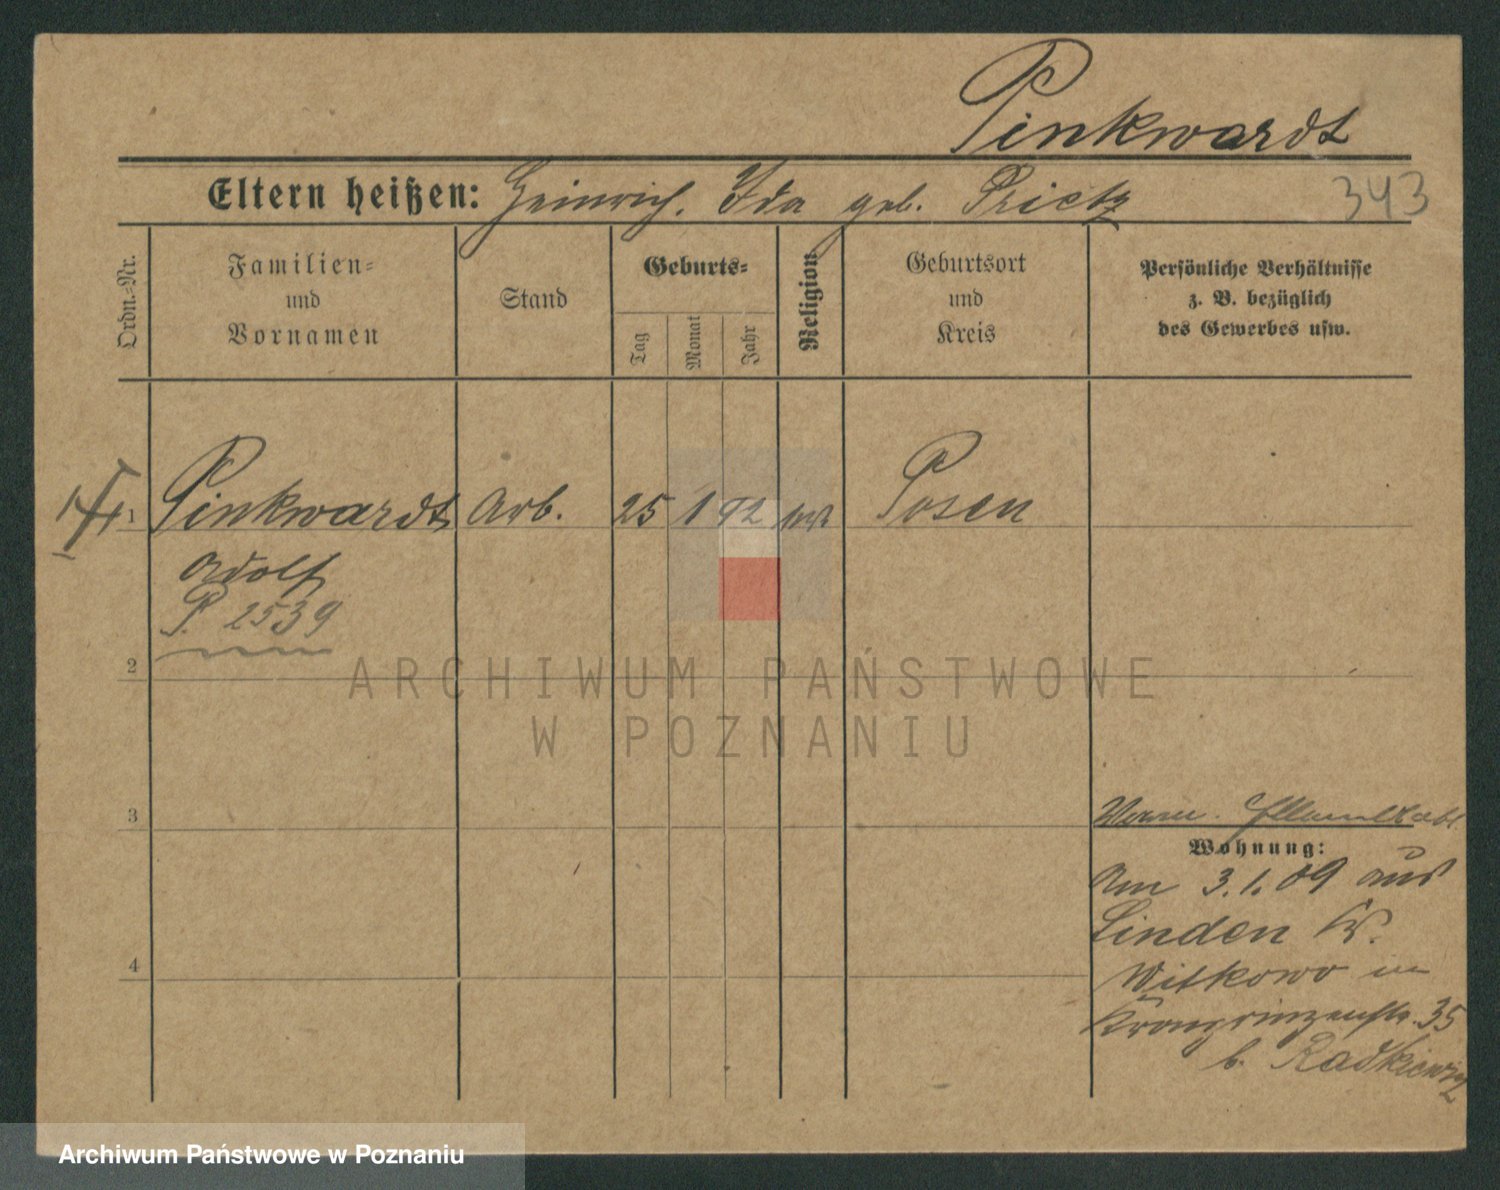 Pinkwardt
Eltern heißen: Heinrich. Ida geb. Prietz
343
Ordn.-Nr.
Familien-
und
Vornamen
Stand
Geburts-
Tag
Monat
Jahr
Religion
Geburtsort
und
Kreis
Persönliche Verhältnisse
z. B. bezüglich
des Gewerbes usw.
1 Pinkwardt Arb. 25 1 92 Posen
Adolf
P. 2539
2
ARCHIWUM PAŃSTWOWE
W POZNANIU
3
Wohnung:
Am 3.1.09 aus
Linden Kr.
4
Witkowo in
Kronprinzenstr. 35
b. Radkiewicz
Archiwum Państwowe w Poznaniu